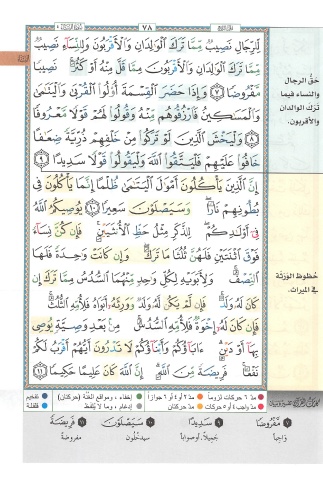 ٧٨
لِّلرِّجَالِ نَصِيبٌ مِّمَّا تَرَكَ الْوَالِدَانِ وَالْأَقْرَبُونَ وَلِلنِّسَاءِ نَصِيبٌ
مِّمَّا تَرَكَ الْوَالِدَانِ وَالْأَقْرَبُونَ مِمَّا قَلَّ مِنْهُ أَوْ كَثُرَ نَصِيبًا
مَّفْرُوضًا ٧ وَإِذَا حَضَرَ الْقِسْمَةَ أُولُوا الْقُرْبَىٰ وَالْيَتَامَىٰ
وَالْمَسَاكِينُ فَارْزُقُوهُم مِّنْهُ وَقُولُوا لَهُمْ قَوْلًا مَّعْرُوفًا
٨ وَلْيَخْشَ الَّذِينَ لَوْ تَرَكُوا مِنْ خَلْفِهِمْ ذُرِّيَّةً ضِعَافًا
خَافُوا عَلَيْهِمْ فَلْيَتَّقُوا اللَّهَ وَلْيَقُولُوا قَوْلًا سَدِيدًا ٩
إِنَّ الَّذِينَ يَأْكُلُونَ أَمْوَالَ الْيَتَامَىٰ ظُلْمًا إِنَّمَا يَأْكُلُونَ فِي
بُطُونِهِمْ نَارًا وَسَيَصْلَوْنَ سَعِيرًا ١٠ يُوصِيكُمُ اللَّهُ
فِي أَوْلَادِكُمْ لِلذَّكَرِ مِثْلُ حَظِّ الْأُنثَيَيْنِ فَإِن كُنَّ نِسَاءً
فَوْقَ اثْنَتَيْنِ فَلَهُنَّ ثُلُثَا مَا تَرَكَ وَإِن كَانَتْ وَاحِدَةً فَلَهَا
النِّصْفُ وَلِأَبَوَيْهِ لِكُلِّ وَاحِدٍ مِّنْهُمَا السُّدُسُ مِمَّا تَرَكَ إِن
كَانَ لَهُ وَلَدٌ فَإِن لَّمْ يَكُن لَّهُ وَلَدٌ وَوَرِثَهُ أَبَوَاهُ فَلِأُمِّهِ الثُّلُثُ
فَإِن كَانَ لَهُ إِخْوَةٌ فَلِأُمِّهِ السُّدُسُ مِن بَعْدِ وَصِيَّةٍ يُوصِي
بِهَا أَوْ دَيْنٍ آبَاؤُكُمْ وَأَبْنَاؤُكُمْ لَا تَدْرُونَ أَيُّهُمْ أَقْرَبُ لَكُمْ
نَفْعًا فَرِيضَةً مِّنَ اللَّهِ إِنَّ اللَّهَ كَانَ عَلِيمًا حَكِيمًا ١١
حَقُّ الرجال
والنساء فيما
تَرَكَ الوالدان
والأقربون.
حُظوظ الوَرَثَة
في الميراث.
مدّ ٦ حركات لزوماً
مدّ ٢ أو ٤ أو ٦ جوازاً
إخفاء، ومواقع الغُنَّة (حركتان)
تفخيم
مدّ واجب ٤ أو ٥ حركات
مدّ حركتان
إدغام، وما لا يُلفَظ
قلقلة
٧ مَّفْرُوضًا
واجباً
٩ سَدِيدًا
١٠ سَيَصْلَوْنَ
سيدخُلون
١١ فَرِيضَةً
مفروضةً